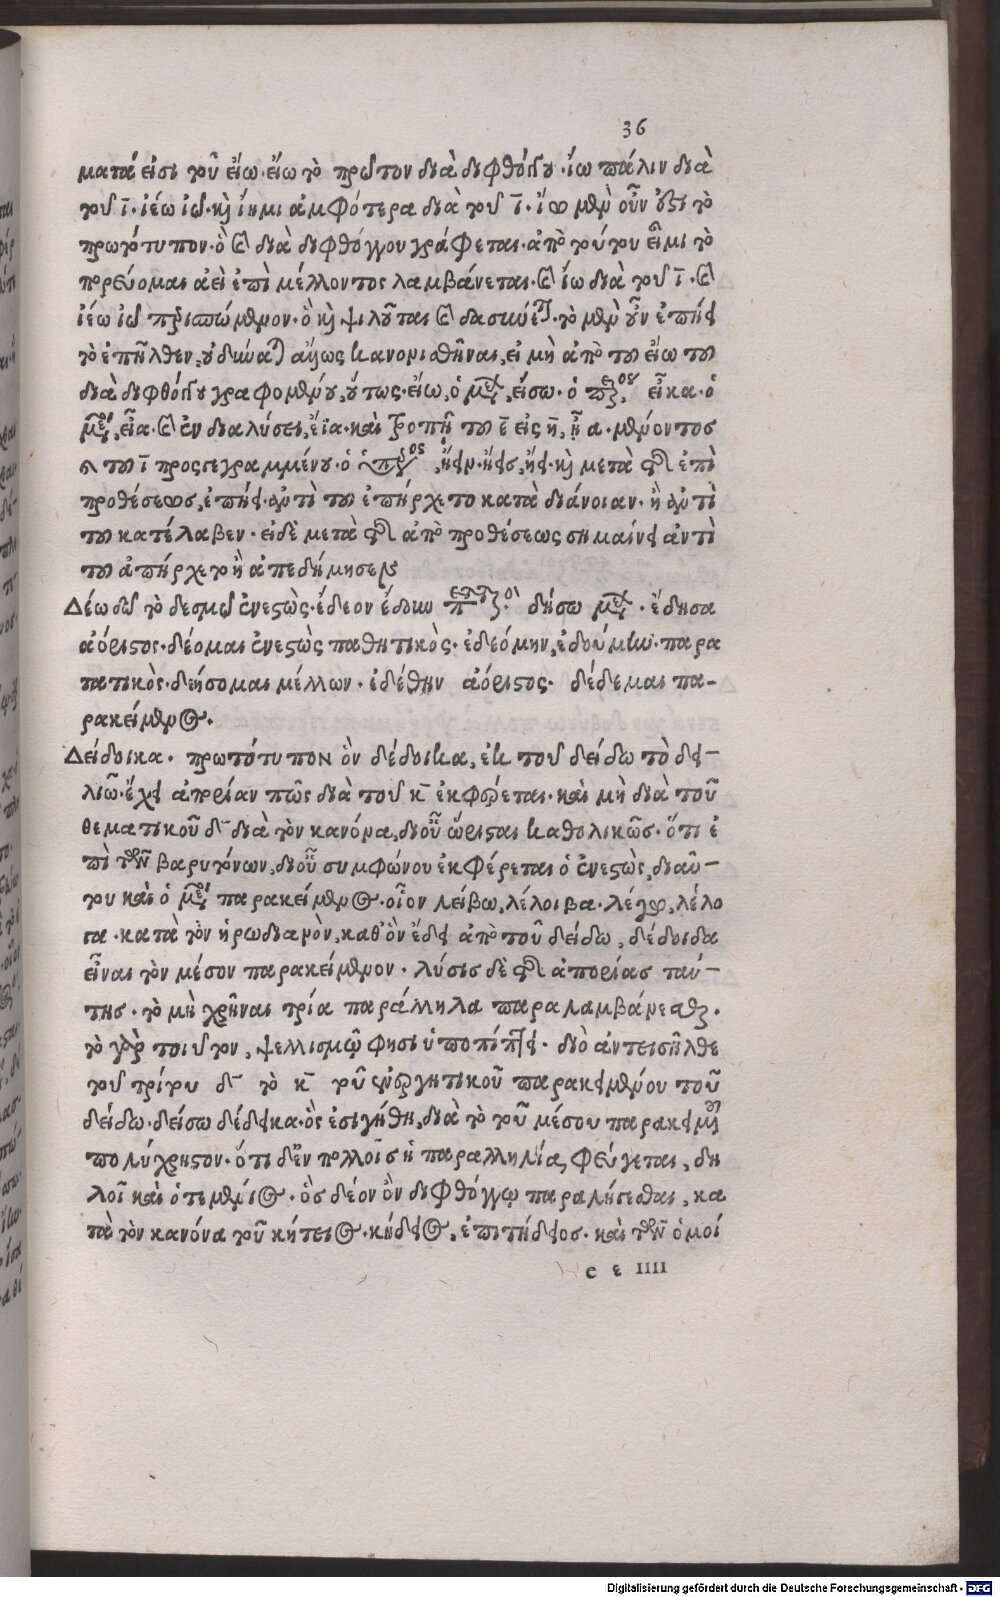 36
ματά εἰσι τοῦ εἴω· εἴω τὸ πρῶτον διὰ διφθόγγου· ἵω πάλιν διὰ
τοῦ ῑ· ἱέω ἱῶ· καὶ ἵημι ἀμφότερα διὰ τοῦ ῑ· ἵω μὲν οὖν ἐστὶ τὸ
πρωτότυπον· ὃ καὶ διὰ διφθόγγου γράφεται· ἀπὸ τούτου εἶμι τὸ
πορεύομαι ἀεὶ ἐπὶ μέλλοντος λαμβάνεται· καὶ ἵω διὰ τοῦ ῑ· καὶ
ἱέω ἱῶ περισπώμενον· ὃ καὶ ψιλοῦται καὶ δασύνεται· τὸ μὲν οὖν ἐπῄει
τὸ ἐπῆλθεν, οὐ δύναται ἄλλως κανονισθῆναι, εἰ μὴ ἀπὸ τοῦ εἴω τοῦ
διὰ διφθόγγου γραφομένου, οὕτως· εἴω, ὁ μέλλων, εἴσω· ὁ παρακείμενος, εἶκα· ὁ
μέσος, εἶα· καὶ ἐν διαλύσει, ἔϊα· καὶ τροπῇ τοῦ ε̄ εἰς η̄, ἦα· μένοντος
καὶ τοῦ ῑ προσγεγραμμένου· ὁ ὑπερσυντέλικος, ᾔειν· ᾔεις, ᾔει· καὶ μετὰ τῆς ἐπὶ
προθέσεως, ἐπῄει· ἀντὶ τοῦ ἐπήρχετο κατὰ διάνοιαν· ἢ ἀντὶ
τοῦ κατέλαβεν· εἰ δὲ μετὰ τῆς ἀπὸ προθέσεως σημαίνει ἀντὶ
τοῦ ἀπήρχετο ἢ ἀπεδήμησεν
Δέω δῶ τὸ δεσμῶ ἐνεστώς· ἔδεον ἔδουν παρατατικός· δήσω μέλλων· ἔδησα
ἀόριστος· δέομαι ἐνεστὼς παθητικός· ἐδεόμην, ἐδούμην· παρα
τατικὸς· δεήσομαι μέλλων· ἐδέθην ἀόριστος· δέδεμαι πα-
ρακείμενος.
Δείδοικα· πρωτότυπον ὂν δέδοικα, ἐκ τοῦ δείδω τὸ δει-
λιῶ· ἔχει ἀπορίαν πῶς διὰ τοῦ κ̄ ἐκφέρεται· καὶ μὴ διὰ τοῦ
θεματικοῦ δ̄ διὰ τὸν κανόνα, δι οὗ ὥρισται καθολικῶς· ὅτι ἐ
πὶ τῶν βαρυτόνων, δι οὗ συμφώνου ἐκφέρεται ὁ ἐνεστὼς, δι αὐ-
του καὶ ὁ μέσος παρακείμενος· οἷον λείβω, λέλοιβα· λέγω, λέλο
γα· κατὰ τὸν ἡρωδιανὸν, καθ' ὃν ἔδει ἀπὸ τοῦ δείδω, δέδοιδα
εἶναι τὸν μέσον παρακείμενον· λύσις δὲ τῆς ἀπορίας ταύ-
της· τὸ μὴ χρῆναι τρία παράλληλα παραλαμβάνεσθαι.
τὸ γὰρ τοιοῦτον, ψελλισμῷ φησὶ ὑποπίπτει· διὸ ἀντεισῆλθε
τοῦ τρίτου δ̄ τὸ κ̄ τοῦ ἐνεργητικοῦ παρακειμένου τοῦ
δείδω· δείσω δέδεικα· ὃς ἐσιγήθη, διὰ τὸ τοῦ μέσου παρακειμένου
πολύχρηστον· ὅτι δὲ ἐν πολλοῖς ἡ παραλληλία φεύγεται, δη
λοῖ καὶ ὁ τεμένιος· ὃς δέον ὂν διφθόγγῳ παραλήγεσθαι, κα
τὰ τὸν κανόνα τοῦ κήτειος· κήδειος, ἐπιτήδειος· καὶ τῶν ὁμοί
c ε IIII
Digitalisierung gefördert durch die Deutsche Forschungsgemeinschaft - DFG